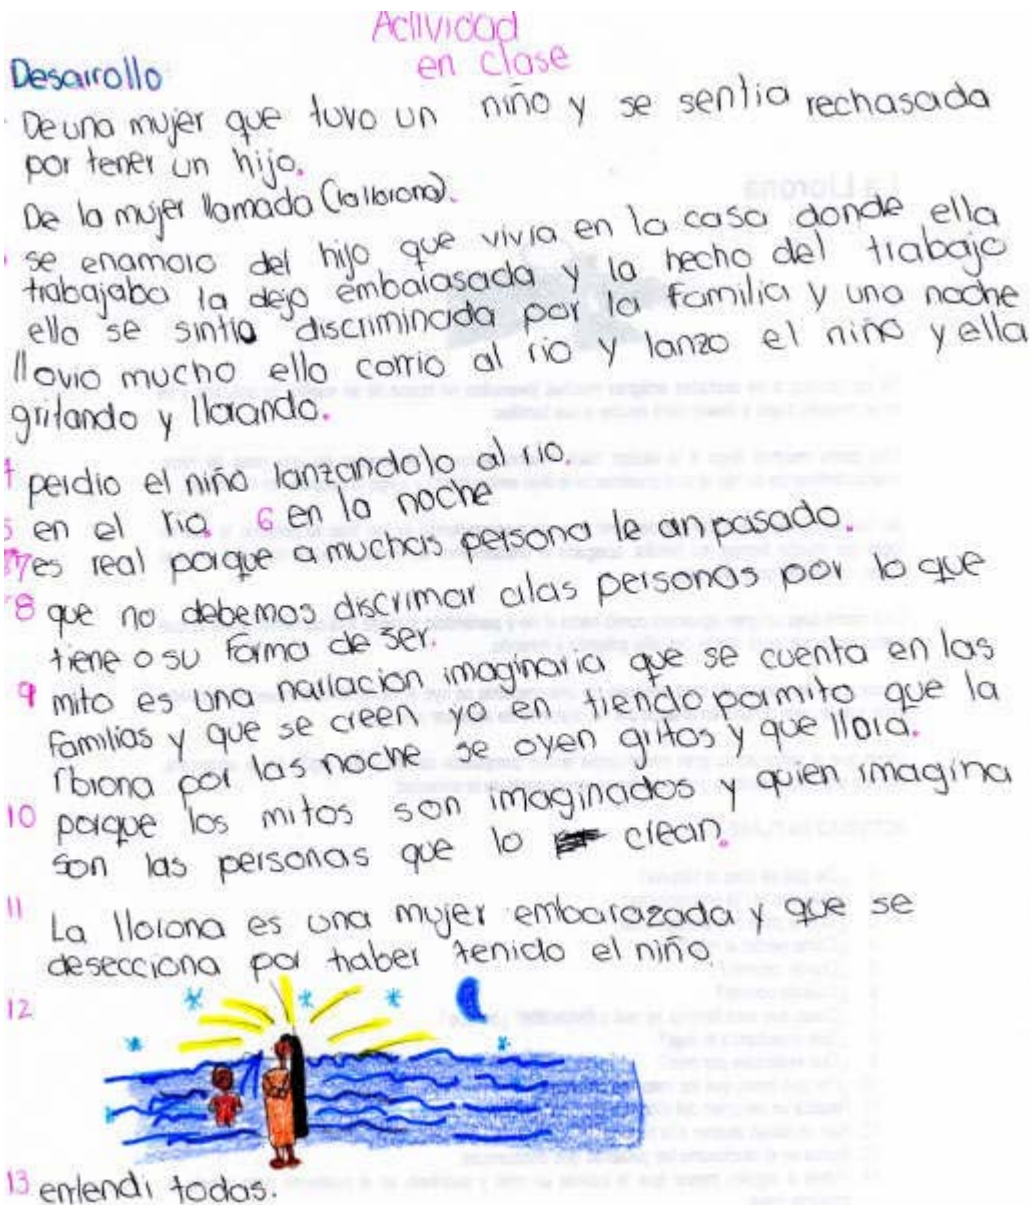 Actividad
en clase
Desarrollo
De una mujer que tuvo un niño y se sentia rechasada
por tener un hijo.
De la mujer llamada (la llorona).
se enamoro del hijo que vivia en la casa donde ella
trabajaba la dejo embarasada y la hecho del trabajo
ella se sintio discriminada por la familia y una noche
llovio mucho ella corrio al rio y lanzo el niño y ella
gritando y llorando.
4 perdio el niño lanzandolo al rio.
5 en el rio 6 en la noche
7 es real porque a muchas persona le an pasado.
8 que no debemos discrimar alas personas por lo que
tiene o su forma de ser.
9 mito es una narracion imaginaria que se cuenta en las
familias y que se creen yo en tiendo por mito que la
llorona por las noche se oyen gritos y que llora.
10 porque los mitos son imaginados y quien imagina
son las personas que lo crean.
11 La llorona es una mujer embarazada y que se
desecciona por haber tenido el niño.
12
13 entendi todas.